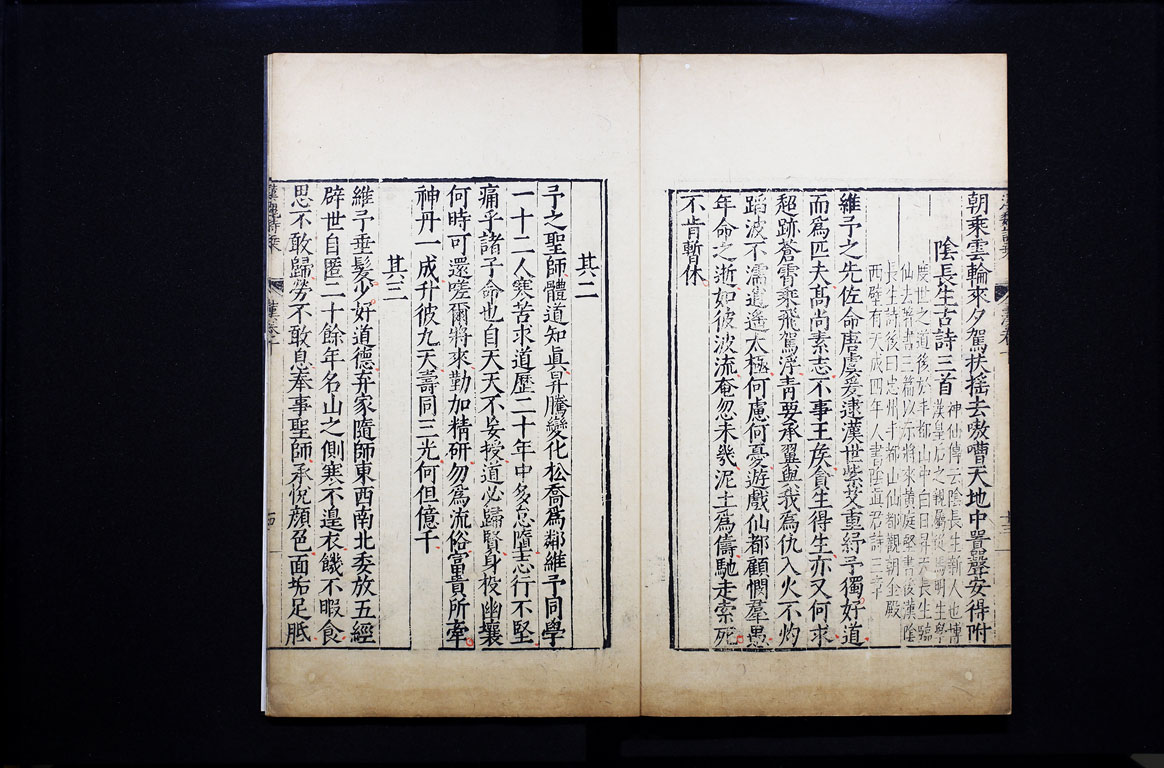 朝乘雲輪來夕駕扶搖去嗷嘈天地中囂聲安得附
陰長生古詩三首
神仙傳云陰長生新人也博
漢皇后之親屬從馬明生學
度世之道後於丰都山中白日昇天長生臨
仙去著書三篇以示將來黄庭堅書後漢陰
長生詩後曰忠州丰都山仙都觀朝金殿
西壁有天成四年人書陰眞君詩三章
維予之先佐命唐虞爰逮漢世紫艾重紆予獨好道
而爲匹夫髙尚素志不事王矦貪生得生亦又何求
超跡蒼霄乘飛駕浮青要承翼與我爲仇入火不灼
蹈波不濡逍遥太極何慮何憂遊戲仙都顧憫羣愚
年命之逝如彼波流奄忽未幾泥土爲儔馳走索死
不肯暫休
其二
予之聖師體道知眞昇騰變化松喬爲鄰維予同學
一十二人寒苦求道歷二十年中多怠惰志行不堅
痛乎諸子命也自天天不妄授道必歸賢身投幽壤
何時可還嗟爾將來勤加精研勿爲流俗富貴所牽
神丹一成升彼九天壽同三光何但億千
其三
維予垂髮少好道德弃家隨師東西南北委放五經
辟世自匿二十餘年名山之側寒不遑衣饑不暇食
思不敢歸勞不敢息奉事聖師承悦顔色面垢足胝